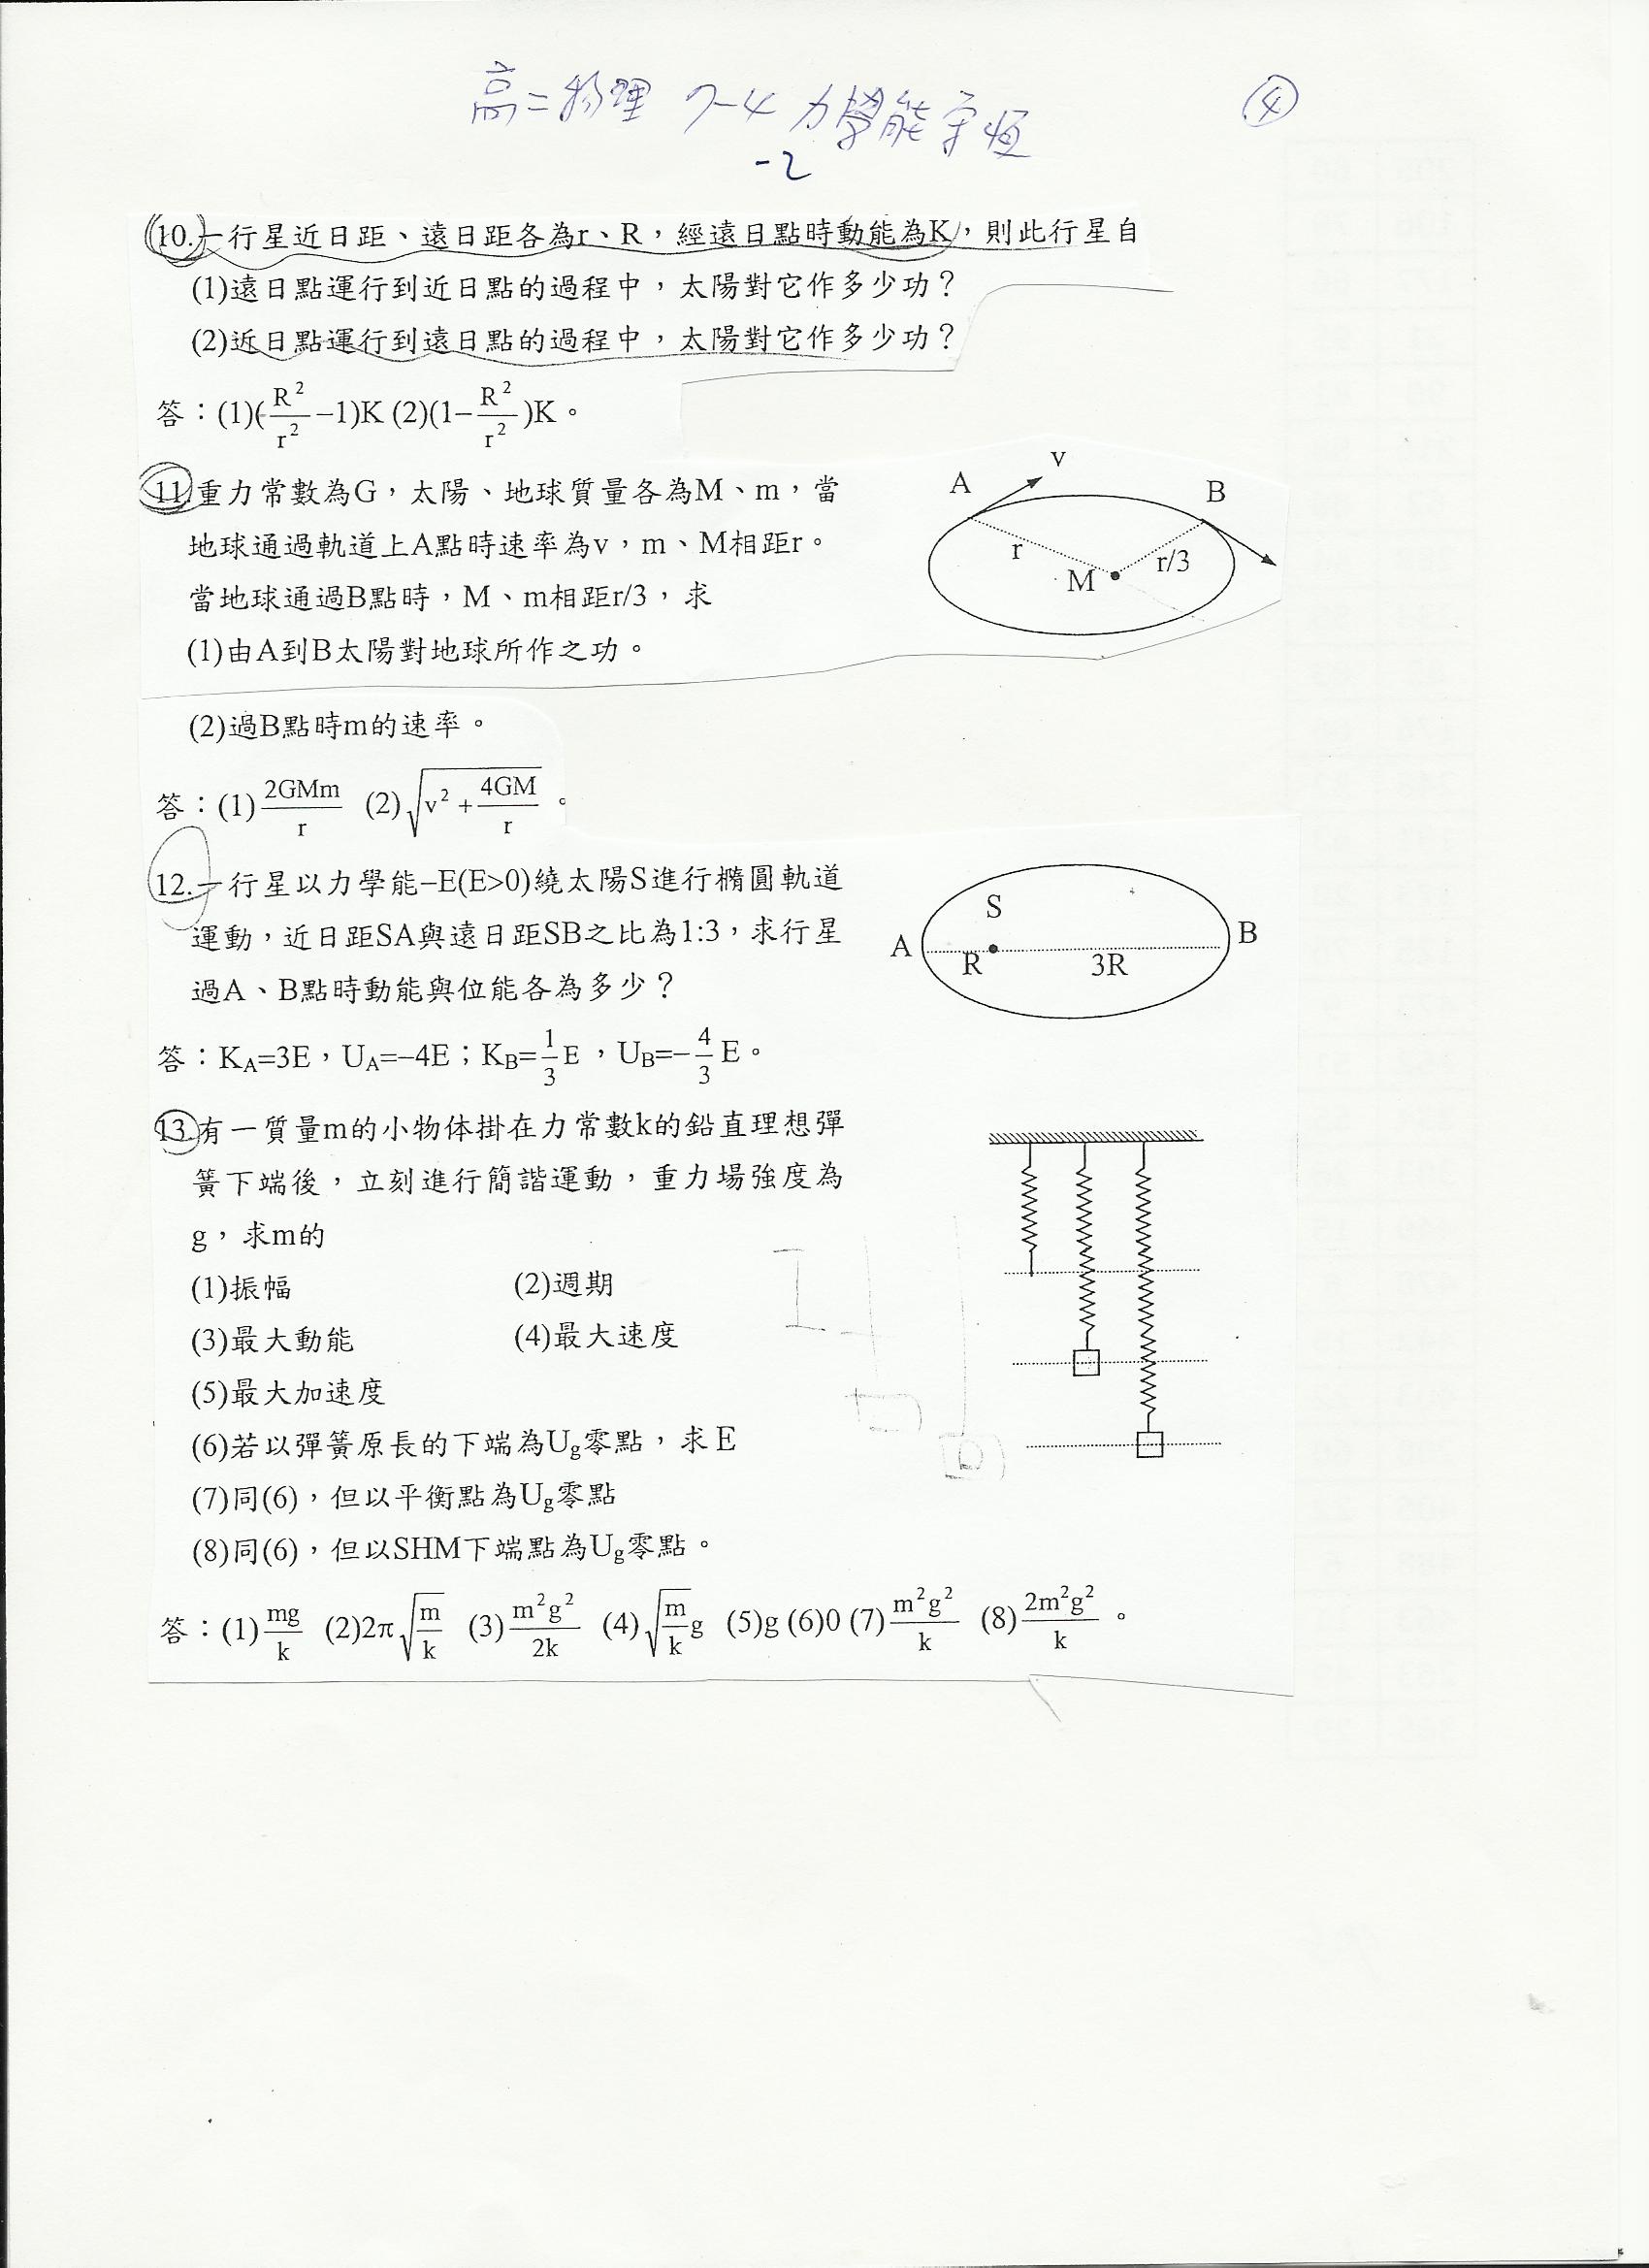 高二物理 7-4 力學能守恆
-2
④
10.一行星近日距、遠日距各為r、R，經遠日點時動能為K，則此行星自
(1)遠日點運行到近日點的過程中，太陽對它作多少功？
(2)近日點運行到遠日點的過程中，太陽對它作多少功？
答：(1)(R²/r²−1)K (2)(1−R²/r²)K。
11.重力常數為G，太陽、地球質量各為M、m，當
地球通過軌道上A點時速率為v，m、M相距r。
當地球通過B點時，M、m相距r/3，求
(1)由A到B太陽對地球所作之功。
A
v
B
r
M
r/3
(2)過B點時m的速率。
答：(1)2GMm/r (2)√(v²+4GM/r)。
12.一行星以力學能−E(E>0)繞太陽S進行橢圓軌道
運動，近日距SA與遠日距SB之比為1:3，求行星
過A、B點時動能與位能各為多少？
S
A
B
R
3R
答：K_A=3E，U_A=−4E；K_B=1/3E，U_B=−4/3E。
13.有一質量m的小物体掛在力常數k的鉛直理想彈
簧下端後，立刻進行簡諧運動，重力場強度為
g，求m的
(1)振幅 (2)週期
(3)最大動能 (4)最大速度
(5)最大加速度
(6)若以彈簧原長的下端為U_g零點，求E
(7)同(6)，但以平衡點為U_g零點
(8)同(6)，但以SHM下端點為U_g零點。
答：(1)mg/k (2)2π√(m/k) (3)m²g²/2k (4)√(m/k)g (5)g (6)0 (7)m²g²/k (8)2m²g²/k。